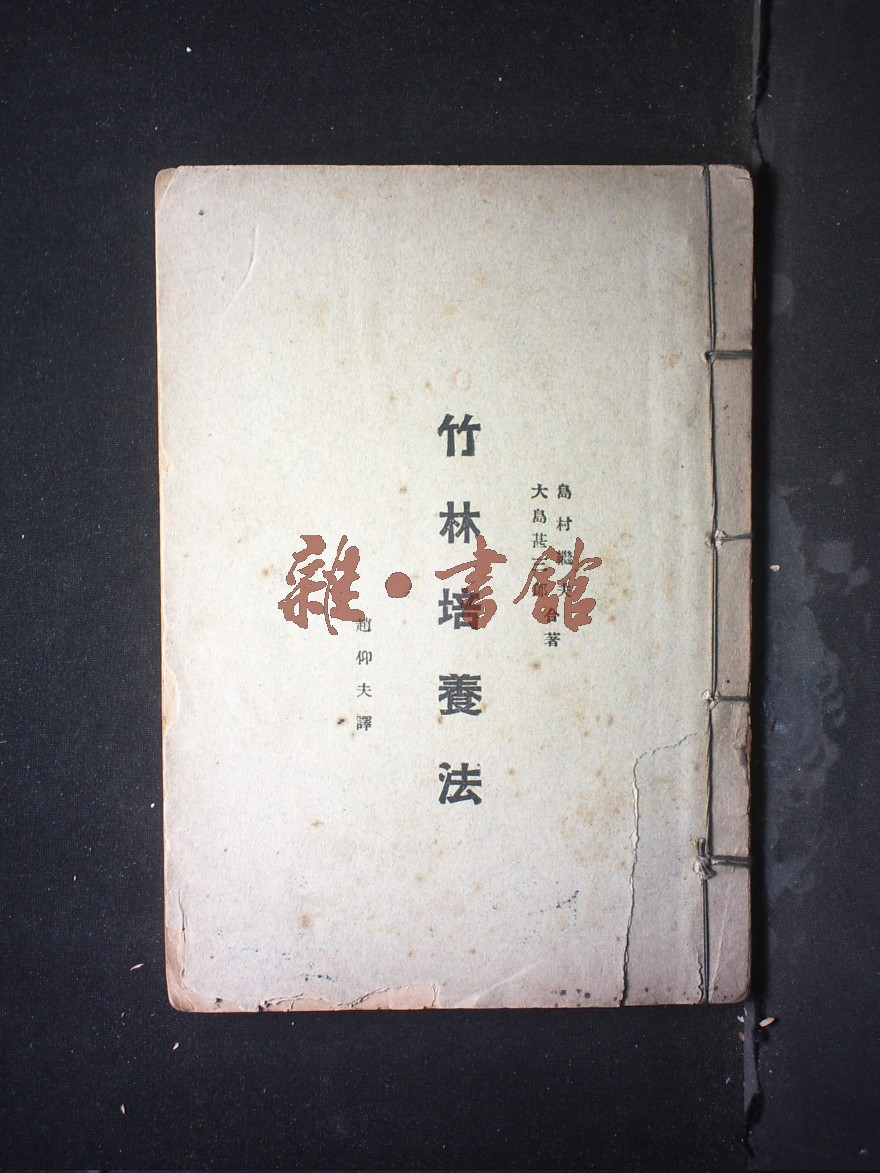 島村繼夫
大島甚三郎
合著
竹林培養法
趙仰夫譯
雜·書館